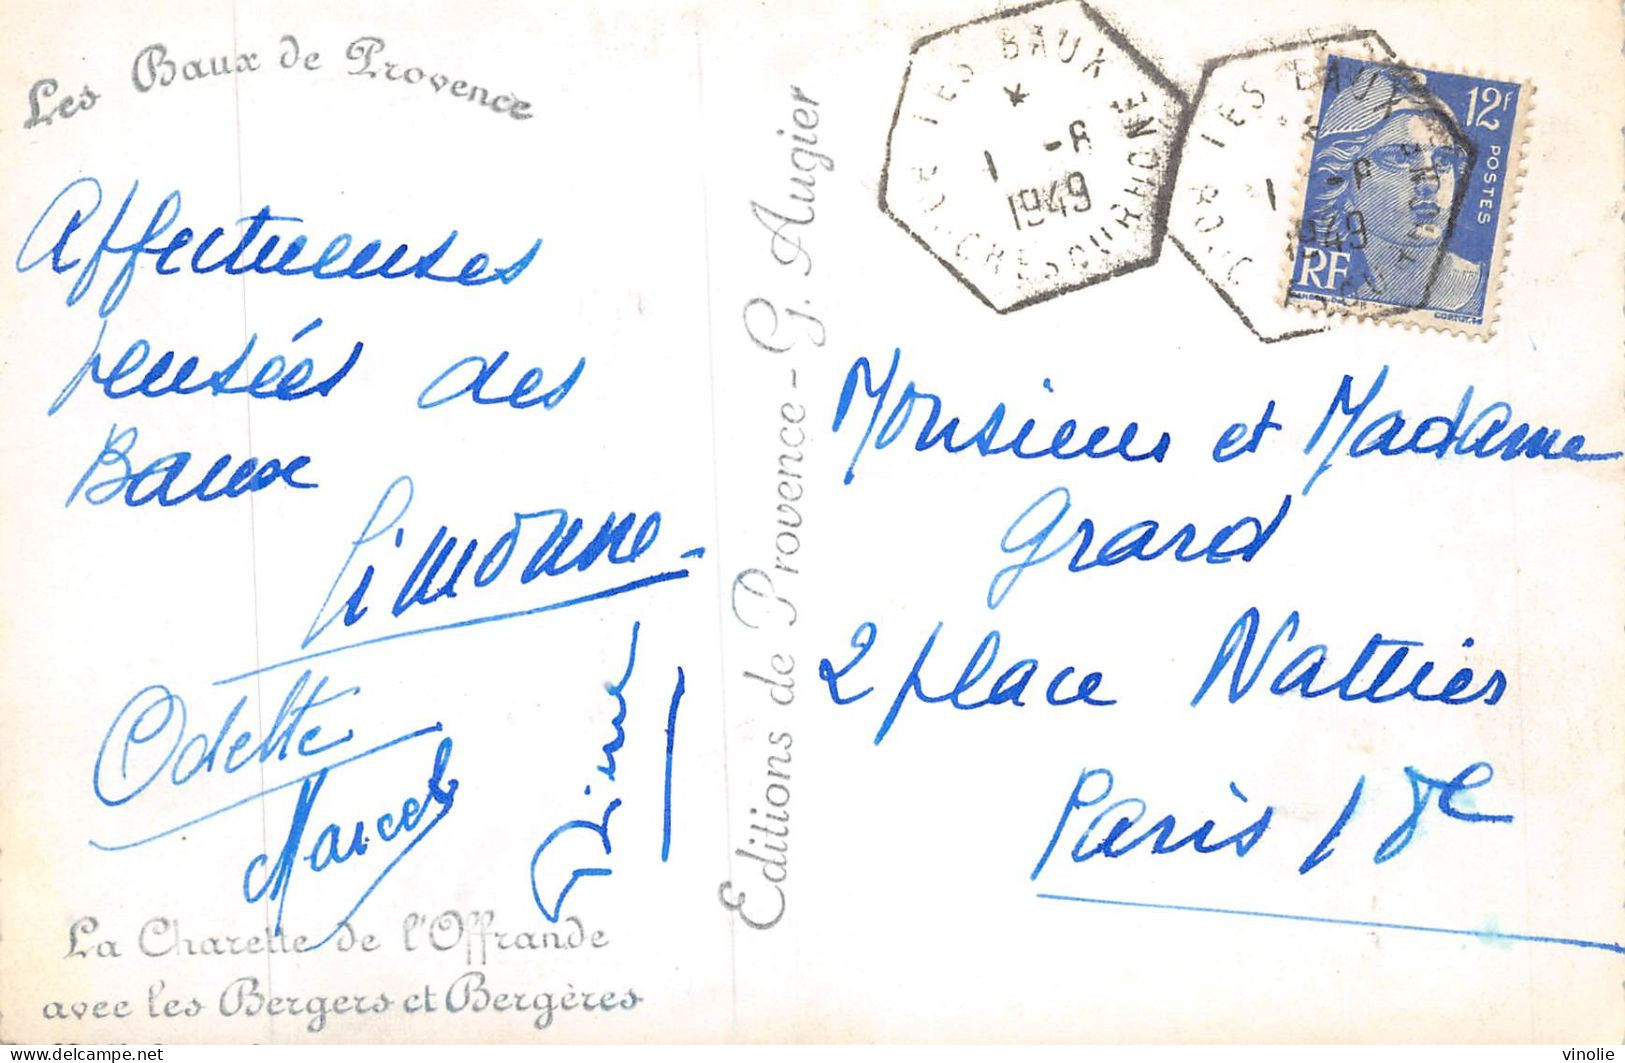 Les Baux de Provence
Affectueuses
pensées des
Baux
Simonne
Odette
Marcel
La Charette de l'Offrande
avec les Bergers et Bergères
Editions de Provence - G. Augier
LES BAUX EN P
*
1 -8
1949
BOUCHES DU RHONE
LES BAUX
1 -8
1949
12F
POSTES
RF
Monsieur et Madame
Grard
2 place Nattier
Paris 18e
vinolie